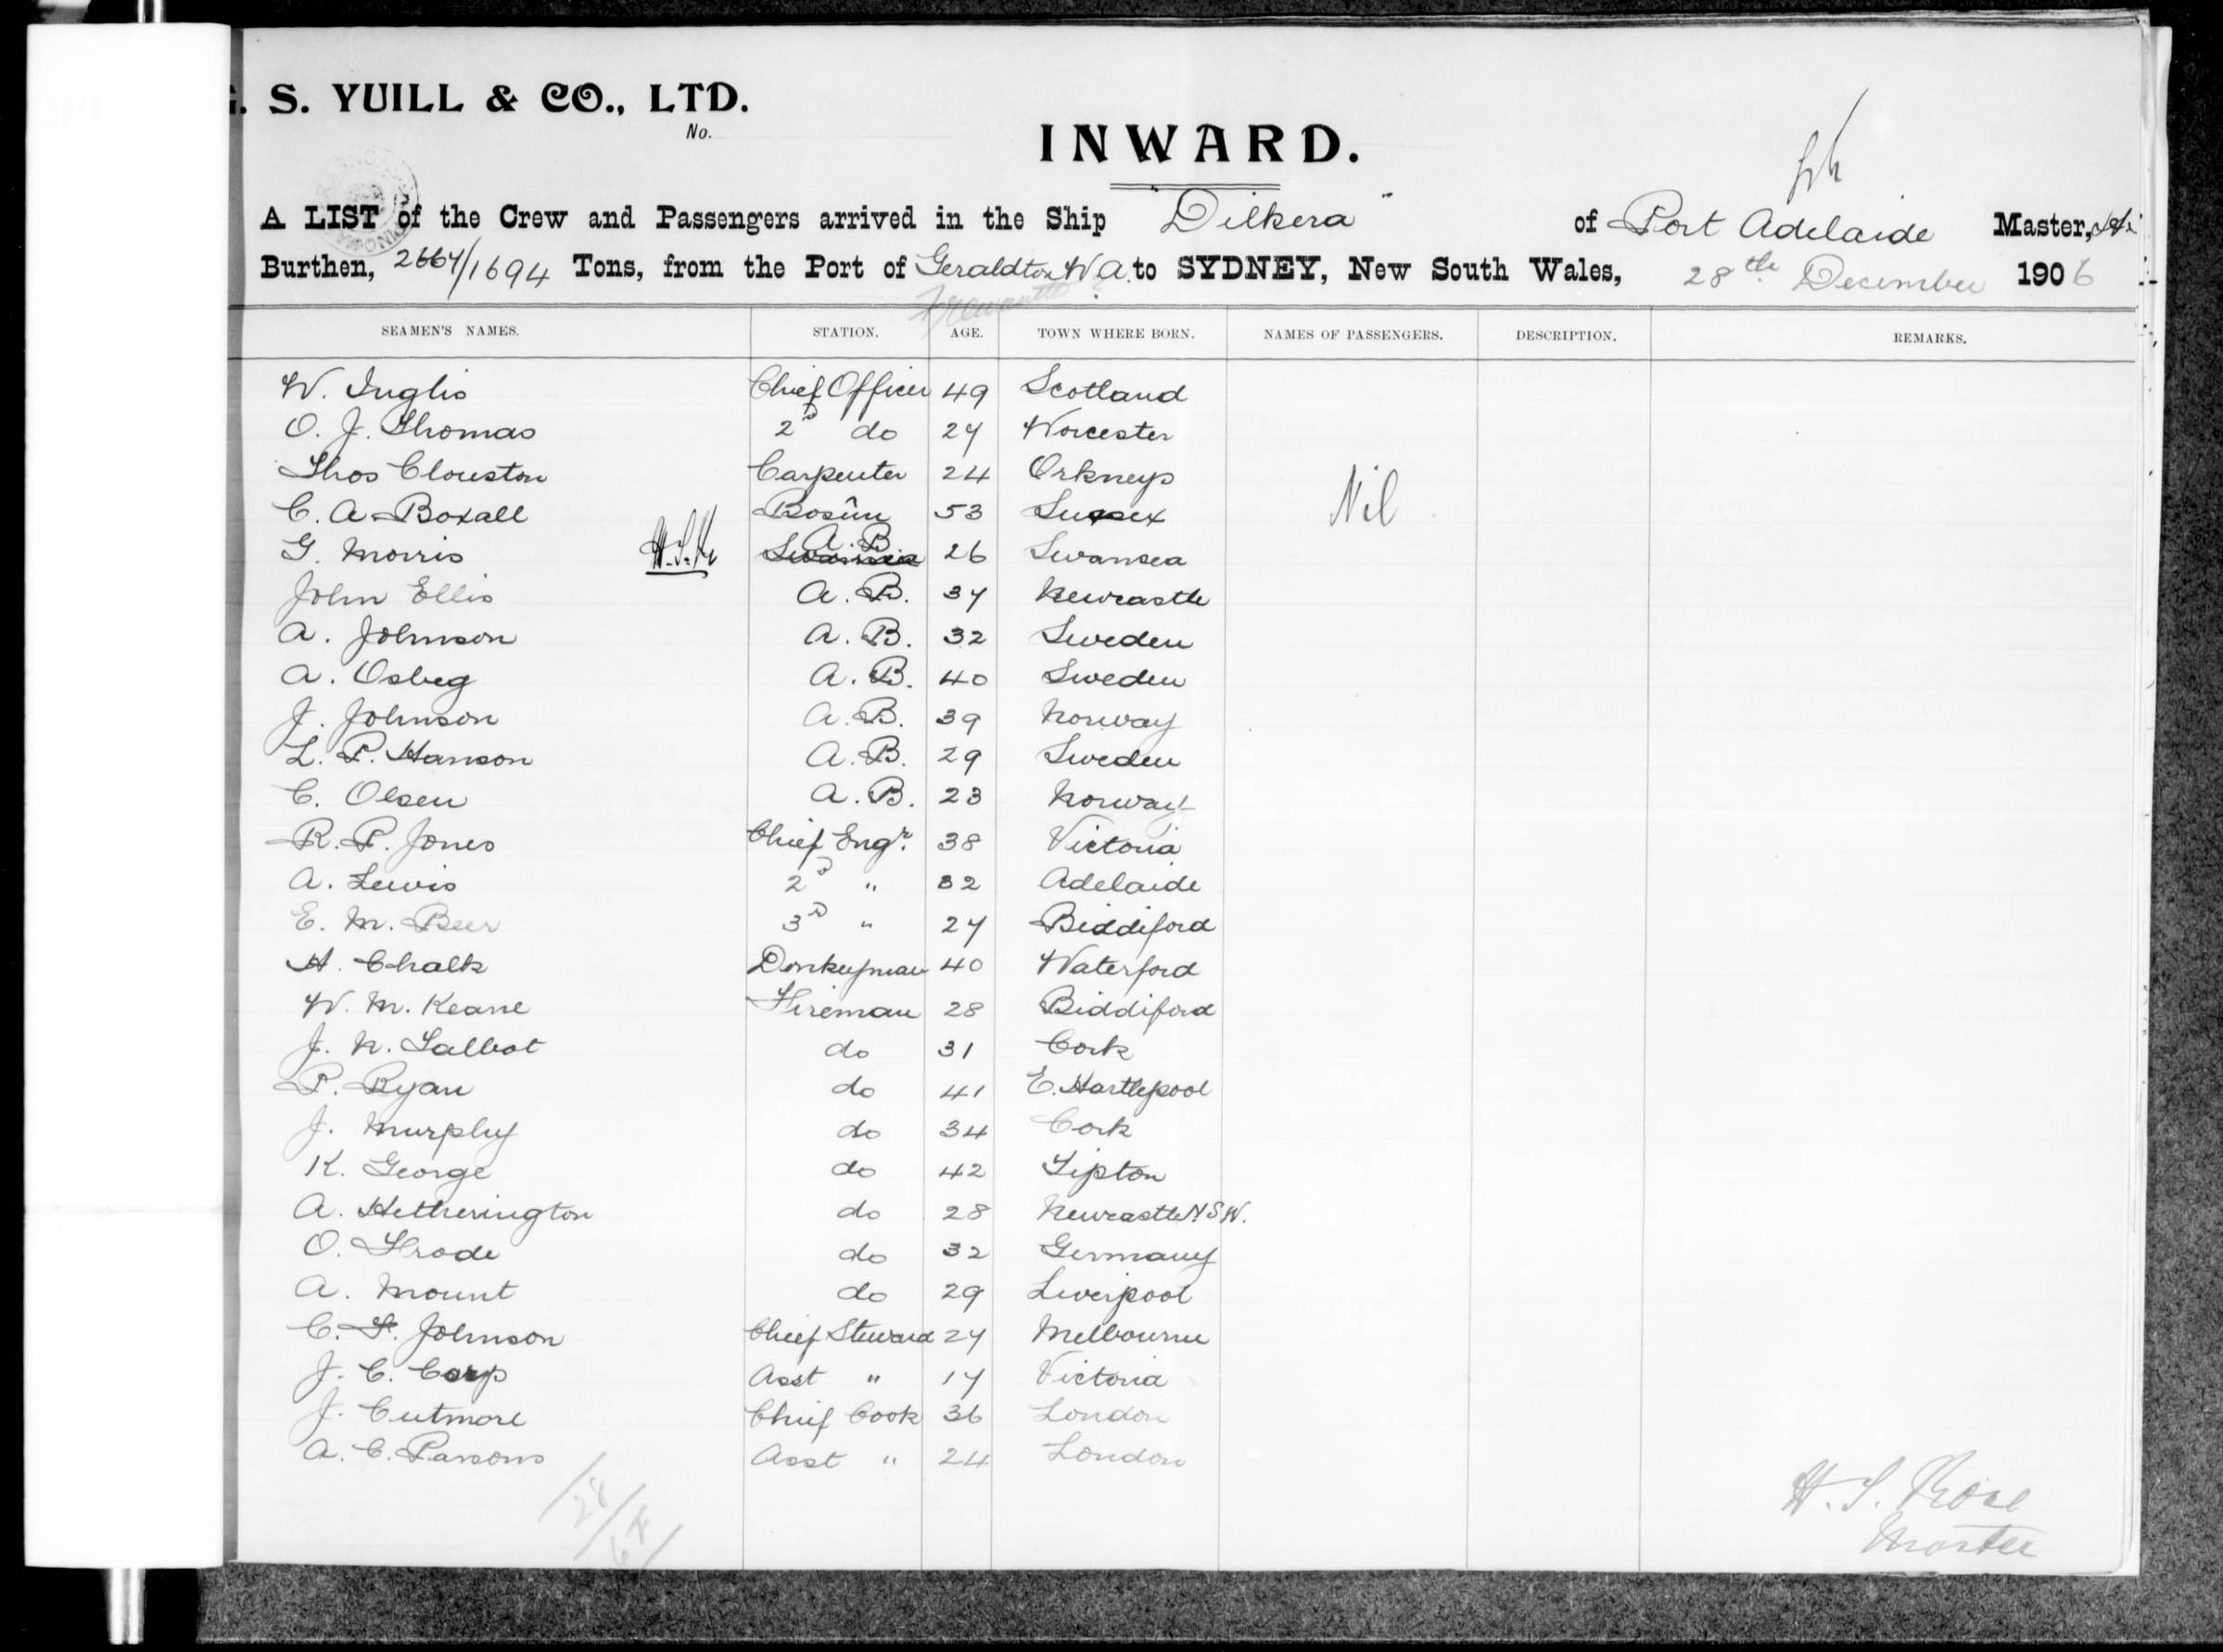 . S. YUILL & CO., LTD.
No.
INWARD.
A LIST of the Crew and Passengers arrived in the Ship "Dilkera" of Port Adelaide Master,
Burthen, 2664/1694 Tons, from the Port of Geraldton W.A. to SYDNEY, New South Wales, 28th December 1906
Fremantle
SEAMEN'S NAMES. STATION. AGE. TOWN WHERE BORN. NAMES OF PASSENGERS. DESCRIPTION. REMARKS.
W. Inglis Chief Officer 49 Scotland
O. J. Thomas 2D do 27 Worcester
Thos Clouston Carpenter 24 Orkneys
C. A. Boxall Bosun 53 Sussex Nil
G. Morris Swansea A.B. 26 Swansea
John Ellis A.B. 37 Newcastle
A. Johnson A.B. 32 Sweden
A. Osbeg A.B. 40 Sweden
J. Johnson A.B. 39 Norway
L. P. Hanson A.B. 29 Sweden
C. Olsen A.B. 23 Norway
R. P. Jones Chief Engr. 38 Victoria
A. Lewis 2D " 32 Adelaide
E. M. Beer 3D " 27 Biddiford
H. Chalk Donkeyman 40 Waterford
W. M. Keane Fireman 28 Biddiford
J. N. Talbot do 31 Cork
P. Ryan do 41 E. Hartlepool
J. Murphy do 34 Cork
K. George do 42 Tipton
A. Hetherington do 28 Newcastle NSW.
O. Throde do 32 Germany
A. Mount do 29 Liverpool
C. F. Johnson Chief Steward 27 Melbourne
J. C. Corp Asst " 17 Victoria
J. Cutmore Chief Cook 36 London
A. C. Parsons Asst " 24 London
28
H. S. Rose
Master